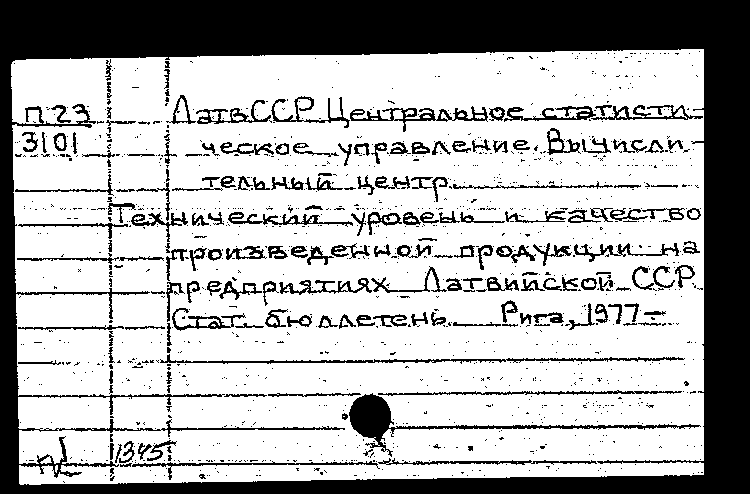 П23
3101
ЛатвССР Центральное статисти-
ческое управление. Вычисли-
тельный центр.
Технический уровень и качество
произведенной продукции на
предприятиях Латвийской ССР.
Стат. бюллетень. Рига, 1977—
1345